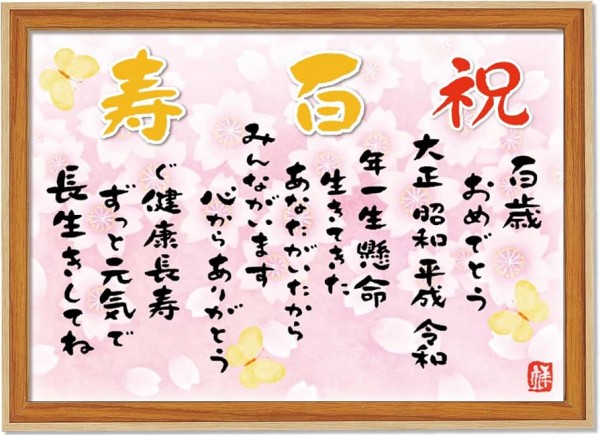 祝 百 寿
百歳
おめでとう
大正 昭和 平成 令和
年一生懸命
生きてきた
あなたがいたから
みんながいます
心からありがとう
ご健康長寿
ずっと元気で
長生きしてね